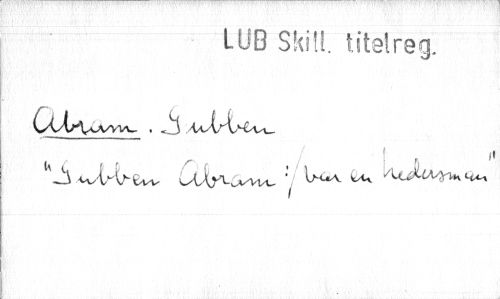 LUB Skill. titelreg.
Abram. Gubben
"Gubben Abram :/ var en hedersman"